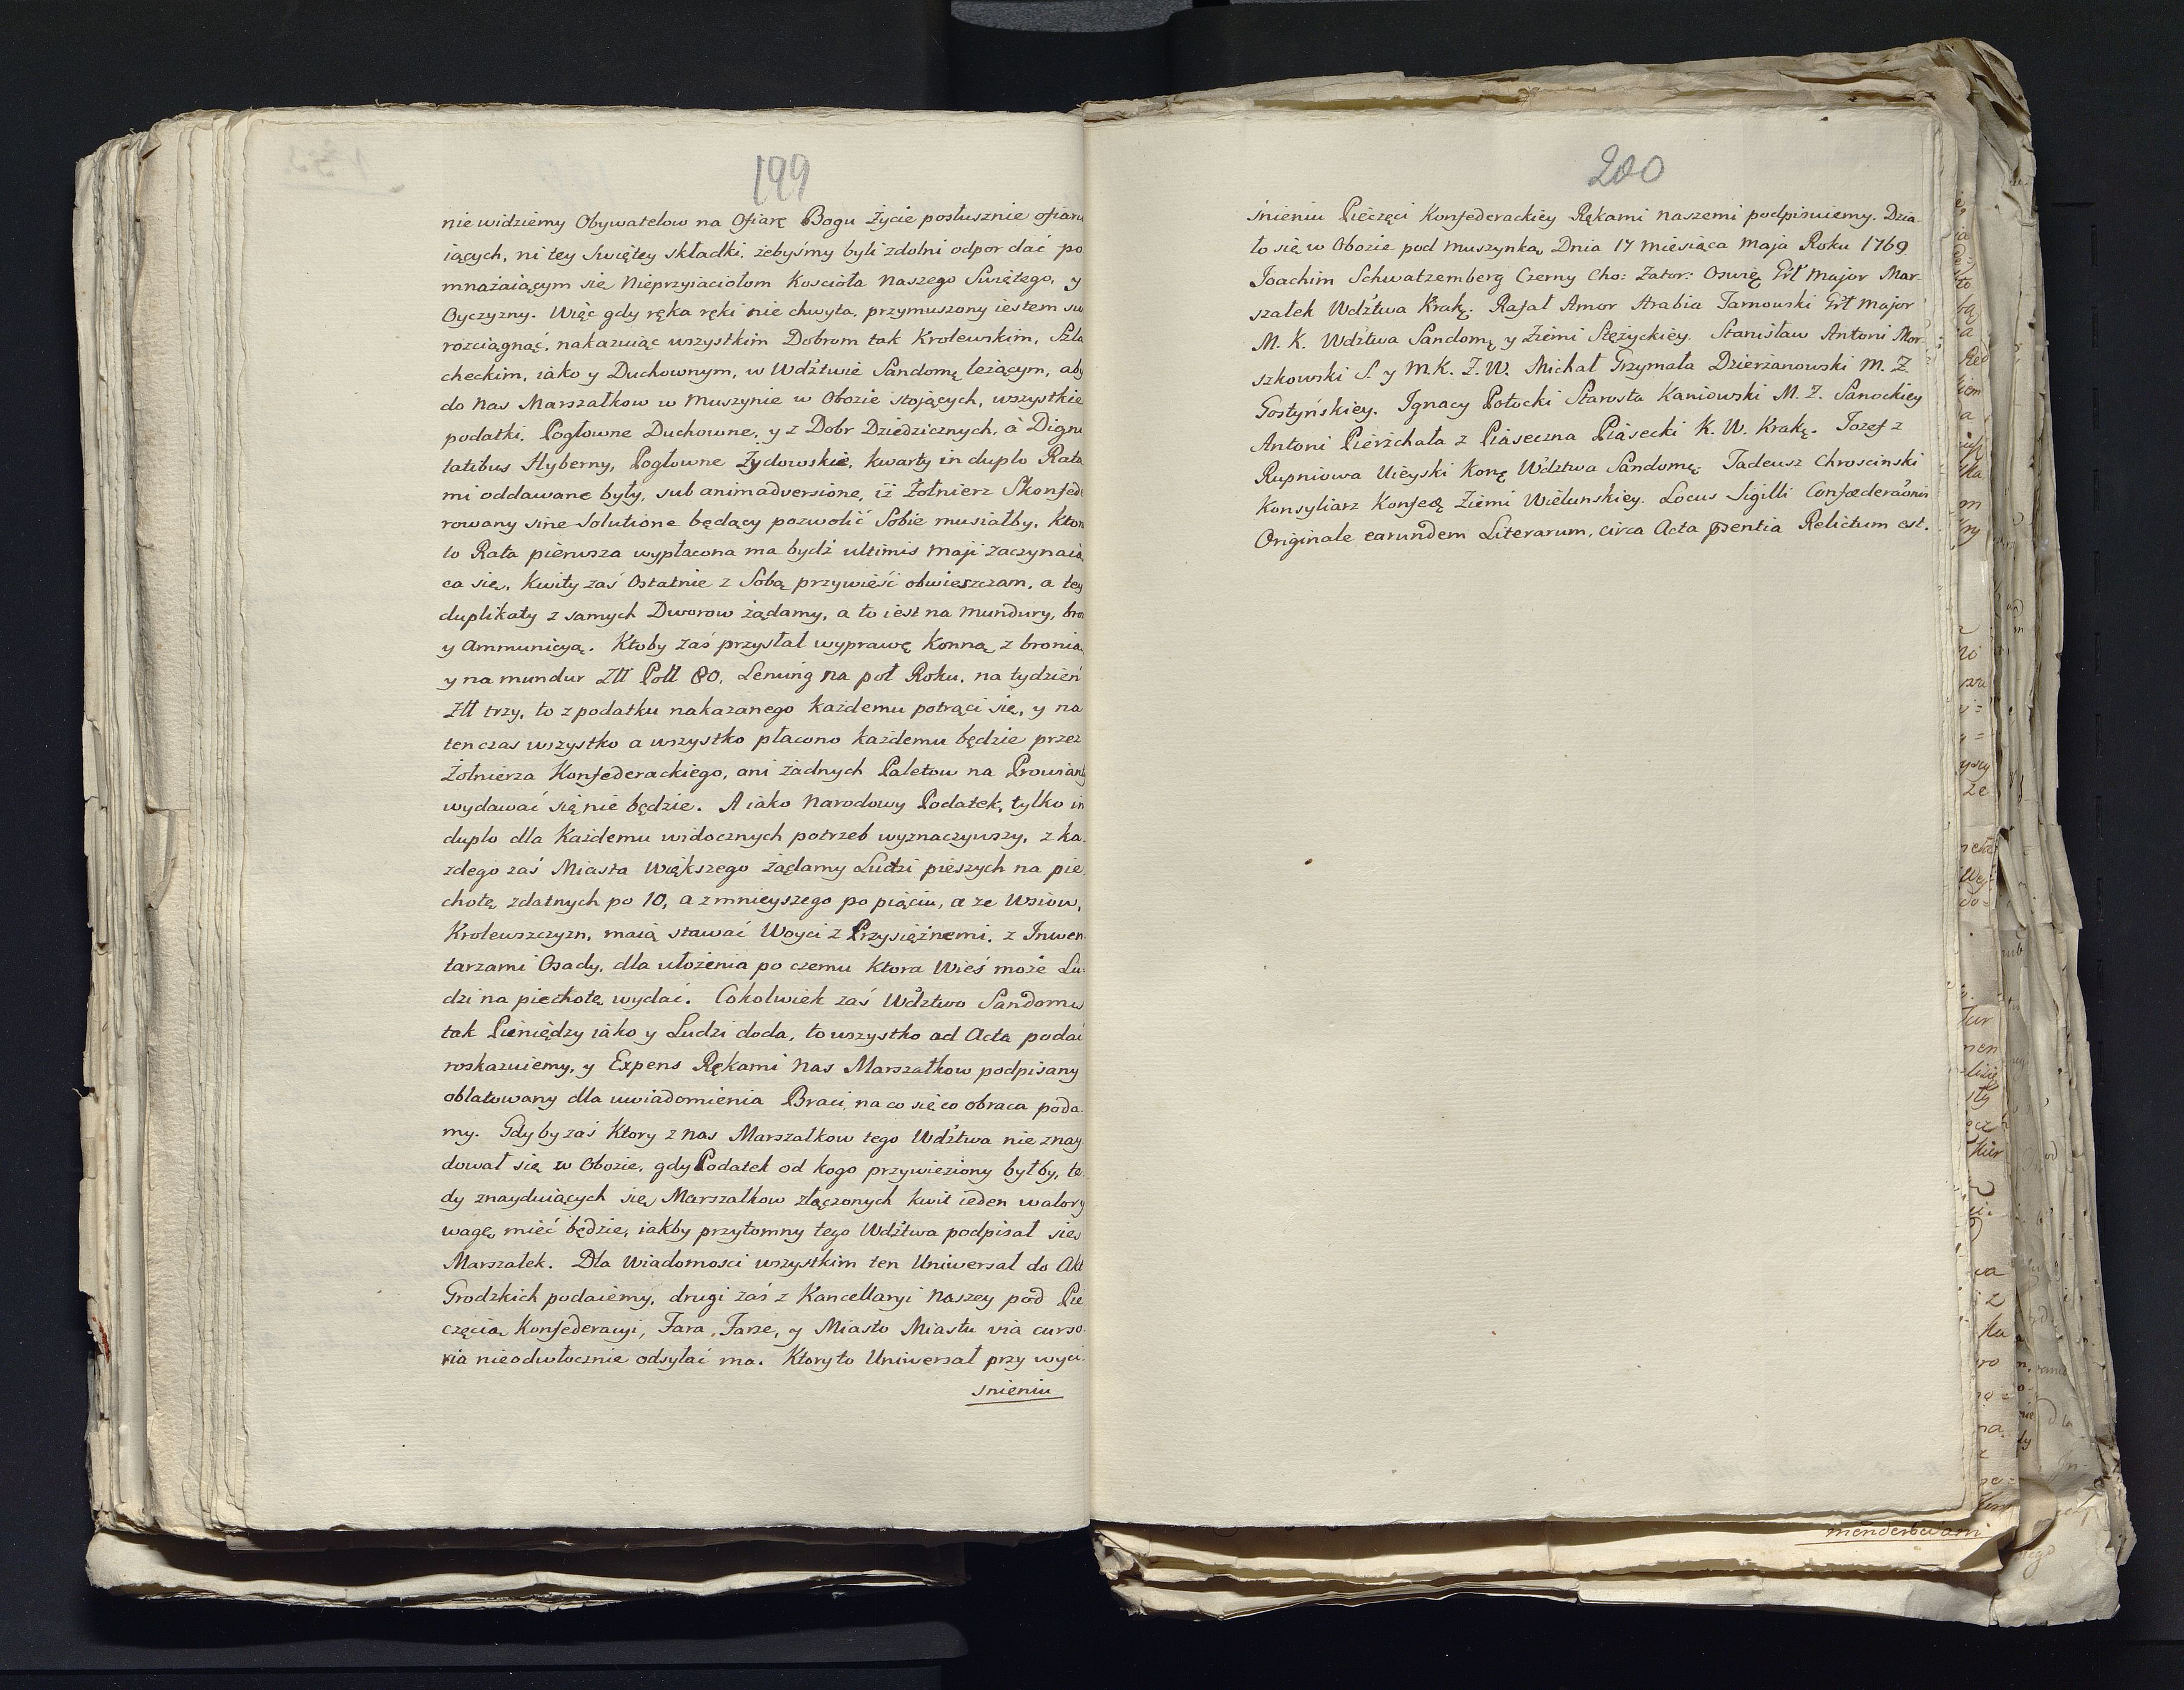 199
nie widziemy Obywatelow na Ofiarę Bogu Życie posłusznie ofiaru
iących, ni tey Swiętey składki, żebyśmy byli zdolni odpor dać po
mnażaiącym się Nieprzyiaciołom Koscioła Naszego Swiętego, y
Oyczyzny. Więc gdy ręka ręki nie chwyta, przymuszony iestem su
rozciągnąć, nakazuiąc wszystkim Dobrom tak Krolewskim, Szla
checkim, iako y Duchownym, w Wdźtwie Sandomę leżącym, aby
do Nas Marszałkow w Muszynie w Obozie stojących, wszystkie
podatki, Pogłowne Duchowne, y z Dobr Dziedzicznych, á Digni
tatibus Hyberny, Pogłowne Żydowskie, kwarty in duplo Rata
mi oddawane były, sub animadversione, iż Żołnierz Skonfede
rowany sine Solutione będący pozwolić Sobie musiałby, ktor
to Rata pierwsza wypłacona ma bydź ultimis Maji zaczynaią
ca się, Kwity zaś Ostatnie z Sobą przywieść obwieszczam, a tey
duplikaty z samych Dworow żądamy, a to iest na Mundury, bron
y Ammunicyą. Ktoby zaś przysłał wyprawę Konną z bronią
y na mundur Złł Poll 80, Lenung na poł Roku, na tydzień
Złł trzy, to z podatku nakazanego każdemu potrąci się, y na
ten czas wszystko a wszystko płacono każdemu będzie przez
Żołnierza Konfederackiego, ani żadnych Paletow na Prowiant
wydawać się nie będzie. A iako Narodowy Podatek, tylko in
duplo dla Każdemu widocznych potrzeb wyznaczywszy, z ka
zdego zaś Miasta większego żądamy Ludzi pieszych na pie
chotę zdatnych po 10, a z mnieyszego po piąciu, a ze Wsiow,
Krolewszczyzn, maią stawać Woyci z Przysiężnemi, z Inwen
tarzami Osady, dla ułożenia po czemu Ktora Wieś może Lu
dzi na piechotę wydać. Cokolwiek zaś Wdztwo Sandomę
tak Pieniędzy iako y Ludzi doda, to wszystko ad Acta podać
roskazuiemy, y Expens Rękami Nas Marszałkow podpisany
oblatowany dla uwiadomienia Braci, na co się co obraca poda
my. Gdyby zaś Ktory z nas Marszałkow tego Wdźtwa nie znay
dował się w Obozie, gdy Podatek od kogo przywieziony byłby, te
dy znayduiących się Marszałkow złączonych kwit ieden walory
wagę mieć będzie, iakby przytomny tego Wdźtwa podpisał się
Marszałek. Dla Wiadomosci wszystkim ten Uniwersał do Akt
Grodzkich podaiemy, drugi zaś z Kancellaryi Naszey pod Pie
częcią Konfederacyi, Fara, Farze, y Miasto Miastu via curso
ria nieodwłocznie odsyłać ma. Ktory to Uniwersał przy wyci
snieniu
200
śnieniu Pieczęci Konfederackiey Rękami naszemi podpisuiemy. Dzia
ło się w Obozie pod Muszynką Dnia 17 Miesiąca Maja Roku 1769
Joachim Schwatzemberg Czerny Cho: Zator: Oswię Grł Major Mar
szałek Wdztwa Krakę. Rafał Amor Arabia Tarnowski Grł Major
M. K. Wdztwa Sandomę y Ziemi Stężyckiey. Stanisław Antoni Mor
szkowski S. y M. K. Z. W. Michał Grzymała Dzierżanowski M. Z
Gostyńskiey. Ignacy Potocki Starosta Kaniowski M. Z. Sanockiey
Antoni Pierzchała z Piaseczna Piasecki K. W. Krakę. Jozef z
Rupniowa Uieyski Konę Wdztwa Sandomę. Tadeusz Chroscinski
Konsyliarz Konfedę Ziemi Wielunskiey. Locus Sigilli Confæderaonis
Originale earundem Literarum, circa Acta psentia Relictum est.